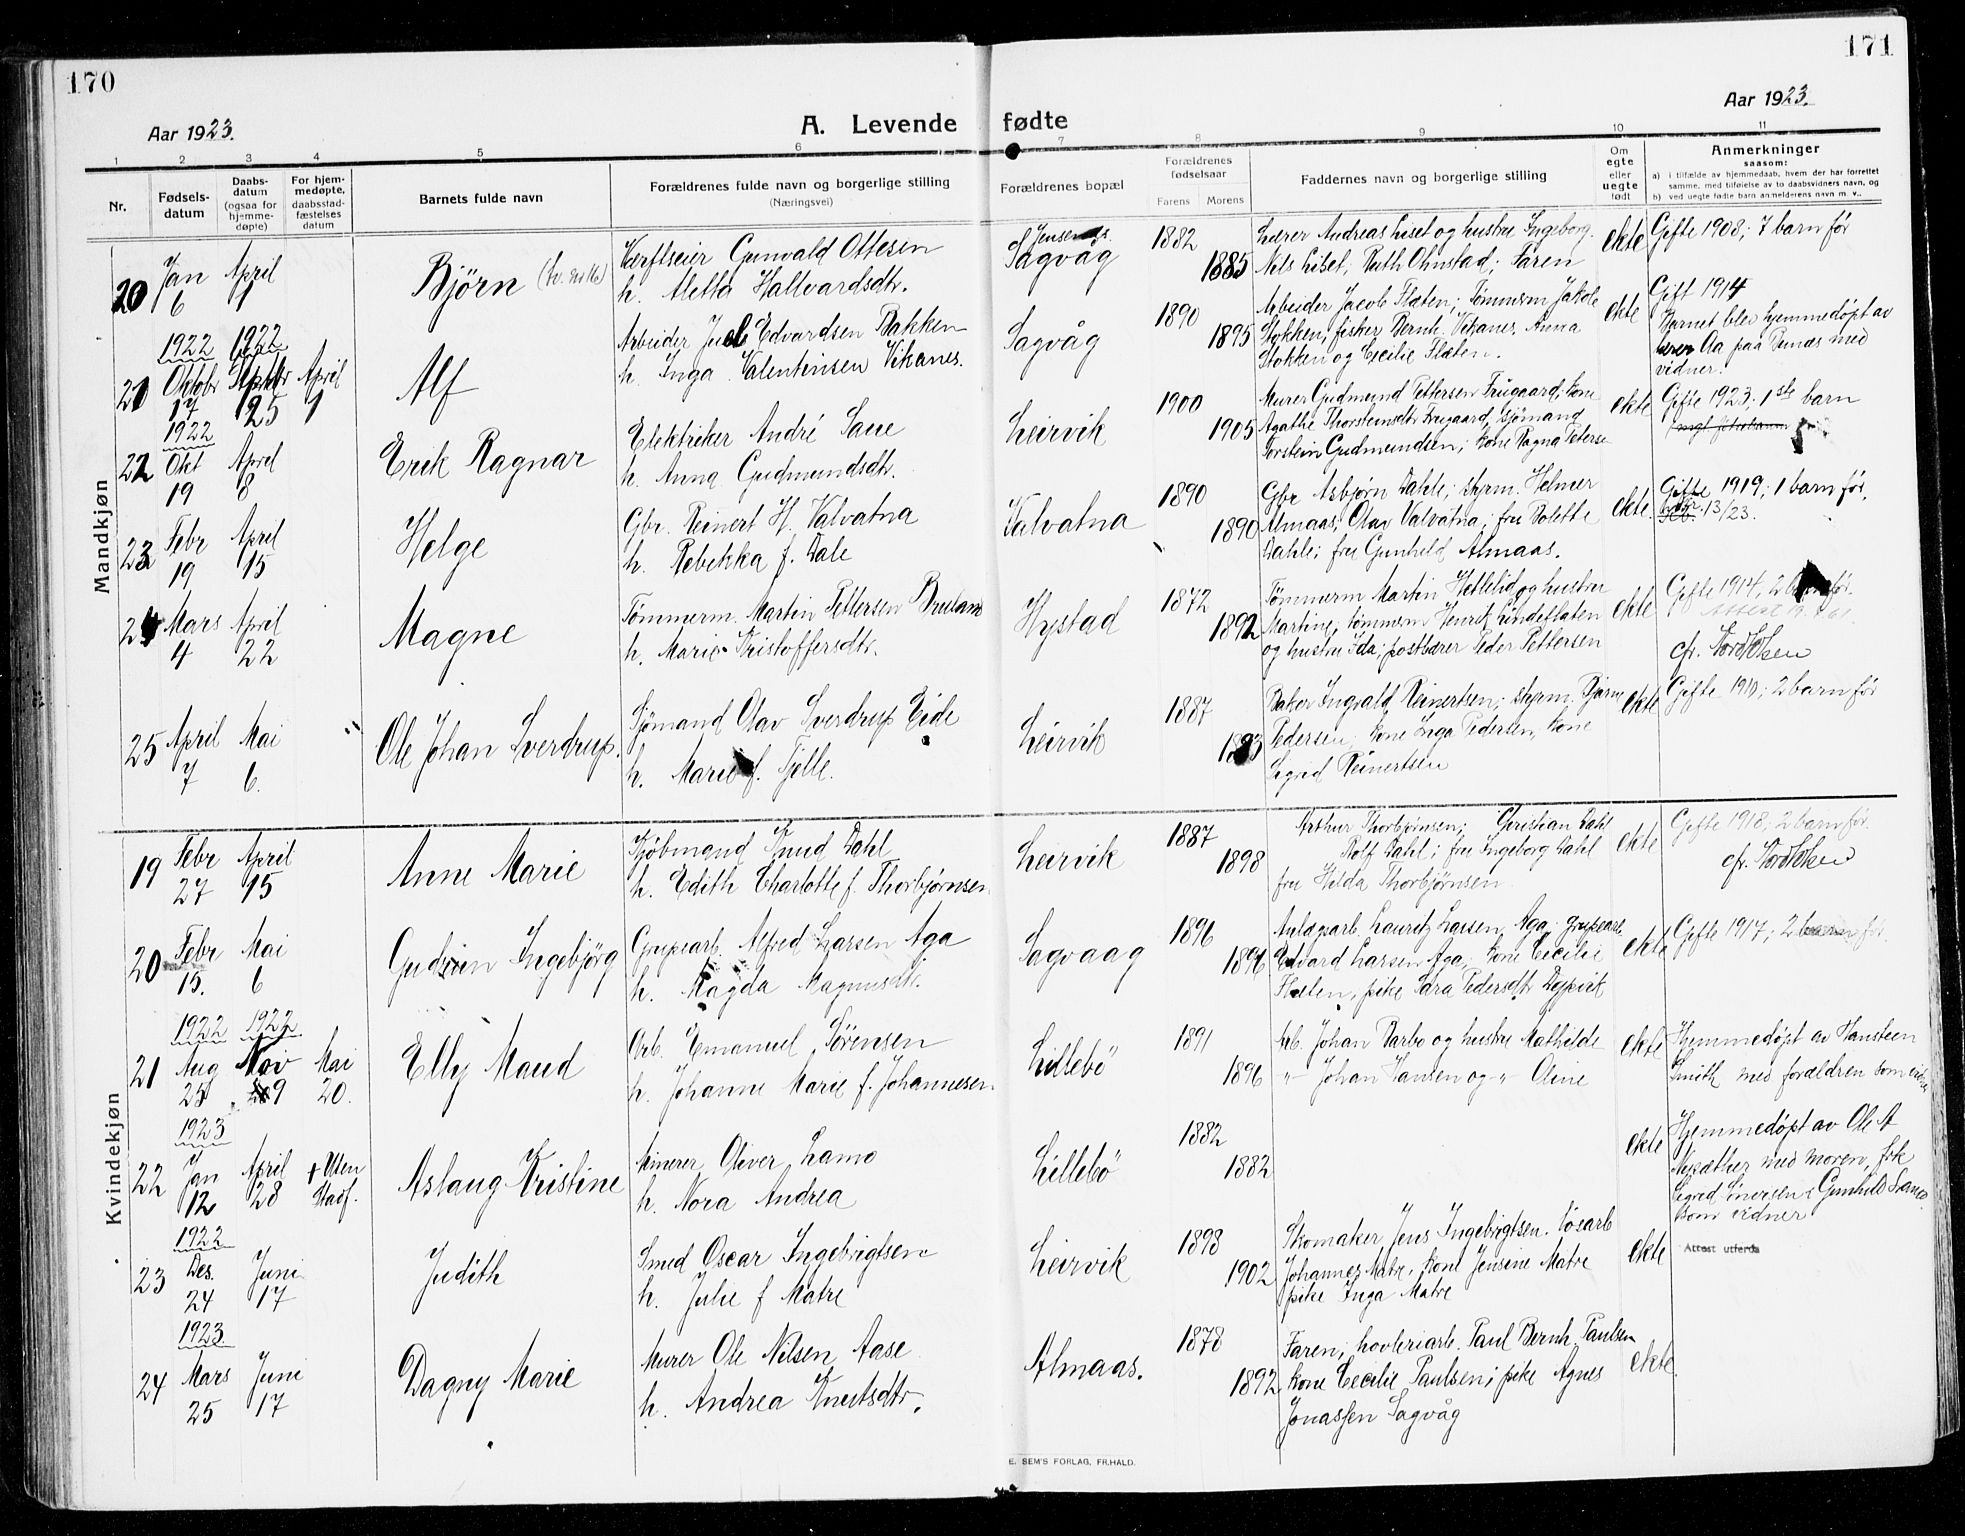 170
171
Aar 1923.
A. Levende fødte
Aar 1923.
1 2 3 4 5 6 7 8 9 10 11
Nr.
Fødselsdatum
Daabsdatum (ogsaa for hjemmedøpte)
For hjemmedøpte, daabsstadfæstelses datum
Barnets fulde navn
Forældrenes fulde navn og borgerlige stilling
(Næringsvei)
Forældrenes bopæl
Forældrenes fødselsaar
Farens Morens
Faddernes navn og borgerlige stilling
Om egte eller uegte født
Anmerkninger
saasom:
a) i tilfælde av hjemmedaab, hvem der har forrettet
samme, med tilføielse av to daabsvidners navn, og
b) ved uegte fødte barn anmelderens navn m. v..
Mandkjøn
20 Jan 6 April 1
Bjørn
Verftseier Gunvald Ottesen
h. Aletta Hallvardsdtr.
Sagvåg
1882
1885
Lærer Andreas Liset og hustru Ingeborg.
Nils Liset; Ruth Ohnstad; Faren
ekte
Gifte 1908; 7 barn før
1922 1922
21 Oktobr 17 25 April 1
Alf
Arbeider Juel Edvardsen Bakken
h. Inga Valentinsen Vikanes.
Sagvåg
1890
1895
Arbeider Jacob Flaten; Tømmerm Jakob
Stokken, fisker Bernh. Vikanes. Anna
Stokken og Cecilie Flaten.
ekte
Gift 1914
Barnet blev hjemmedøpt av
lærer Aa paa Bømæs med
vidner.
1922
22 Okt 19 April 8
Erik Ragnar
Elektriker André Saue
h. Anna Gudmundsdtr.
Leirvik
1900
1905
Murer Gudmund Pettersen Frugaard; kone
Agathe Thorsteinsdtr Frugaard, sjømand
Torstein Gudmundsen; kone Ragna Peterse
ekte
Gifte 1923; 1ste barn
23 Febr 19 April 15
Helge
Gbr. Reinert H. Valvatna
h. Rebekka f. Dale
Valvatna
1890
1890
Gbr Asbjørn Dahle; styrm. Helmer
Almaas; Olav Valvatna; fru Bolette
Dahle; fru Gunhild Almaas.
ekte.
Gifte 1919; 1 barn før.
13/23.
24 Mars 4 April 22
Magne
Tömmerm. Martin Pettersen Breiland
h. Marie Kristoffersdtr.
Hystad
1872
1892
Tømmerm Martin Hettelid og hustru
Martine, tömmerm Henrik Lindeflaten
og hustru Ida; postbærer Peder Pettersen
ekte
Gifte 1914, 2 barn før.
25 April 7 Mai 6.
Ole Johan Sverdrup.
Sjömand Olav Sverdrup Eide
h. Marie f. Tjelle.
Leirvik
1887
1893
Baker Ingvald Reinertsen; styrm. Bjarne
Pedersen; kone Inga Pedersen, kone
Sigrid Reinertsen
ekte
Gifte 1910; 2 barn før
Kvindekjøn
19 Febr 27 April 15
Anne Marie
Kjöbmand Knud Dahl
h. Edith Charlotte f. Thorbjørnsen
Leirvik
1887
1898
Arthur Thorbjørnsen; Christian Dahl
Rolf Dahl; fru Ingeborg Dahl
fru Hilda Thorbjørnsen
ekte
Gifte 1918, 2 barn før.
20 Febr 15. Mai 6
Gudrun Ingebjørg
Grupearb. Alfred Larsen Aga
h. Magda Magnusdtr.
Sagvaag
1896
1896
Anlægsarb. Lauritz Larsen Aga, grupearb
Edvard Larsen Aga; kone Cecilie
Flaten, pike Sara Pedersdtr Dypvik
ekte
Gifte 1917; 2 barn før.
1922 1922
21 Aug 25 Nov 9 Mai 20.
Elly Maud
Arb. Emanuel Sørensen
h. Johanne Marie f. Johannesen
Lillebö
1891
1896
Arb. Johan Barbo og hustru Mathilde
„- Johan Hansen og -„- Oline
ekte
Hjemmedøpt av Hansteen
Smith med forældren som vidne
1923
22 Jan 12 April 28 + Uten Stadf.
Aslaug Kristine
Minerer Oliver Lamo
h. Nora Andrea
Lillebö
1882
1882
ekte
Hjemmedøpt av Ole A
med moren, frk
Sigrid Gunhild Lamo
som vidner
1922
23 Des. 24 Juni 17
Judith
Smed Oscar Ingebrigtsen
h. Julie f Matre
Leirvik
1898
1902
Skomaker Jens Ingebrigtsen. Løsarb
Johannes Matre, kone Jensine Matre
pike Inga Matre
ekte
Attest utferda
1923.
24 Mars 25 Juni 17
Dagny Marie
Murer Ole Nilsen Aase
h. Andrea Knutsdtr.
Almaas.
1878
1892
Faren; hovleriarb. Paul Bernh. Paulsen
kone Cecilie Paulsen; pike Agnes
Jonassen Sagvåg
ekte.
E. SEM'S FORLAG, FR.HALD.